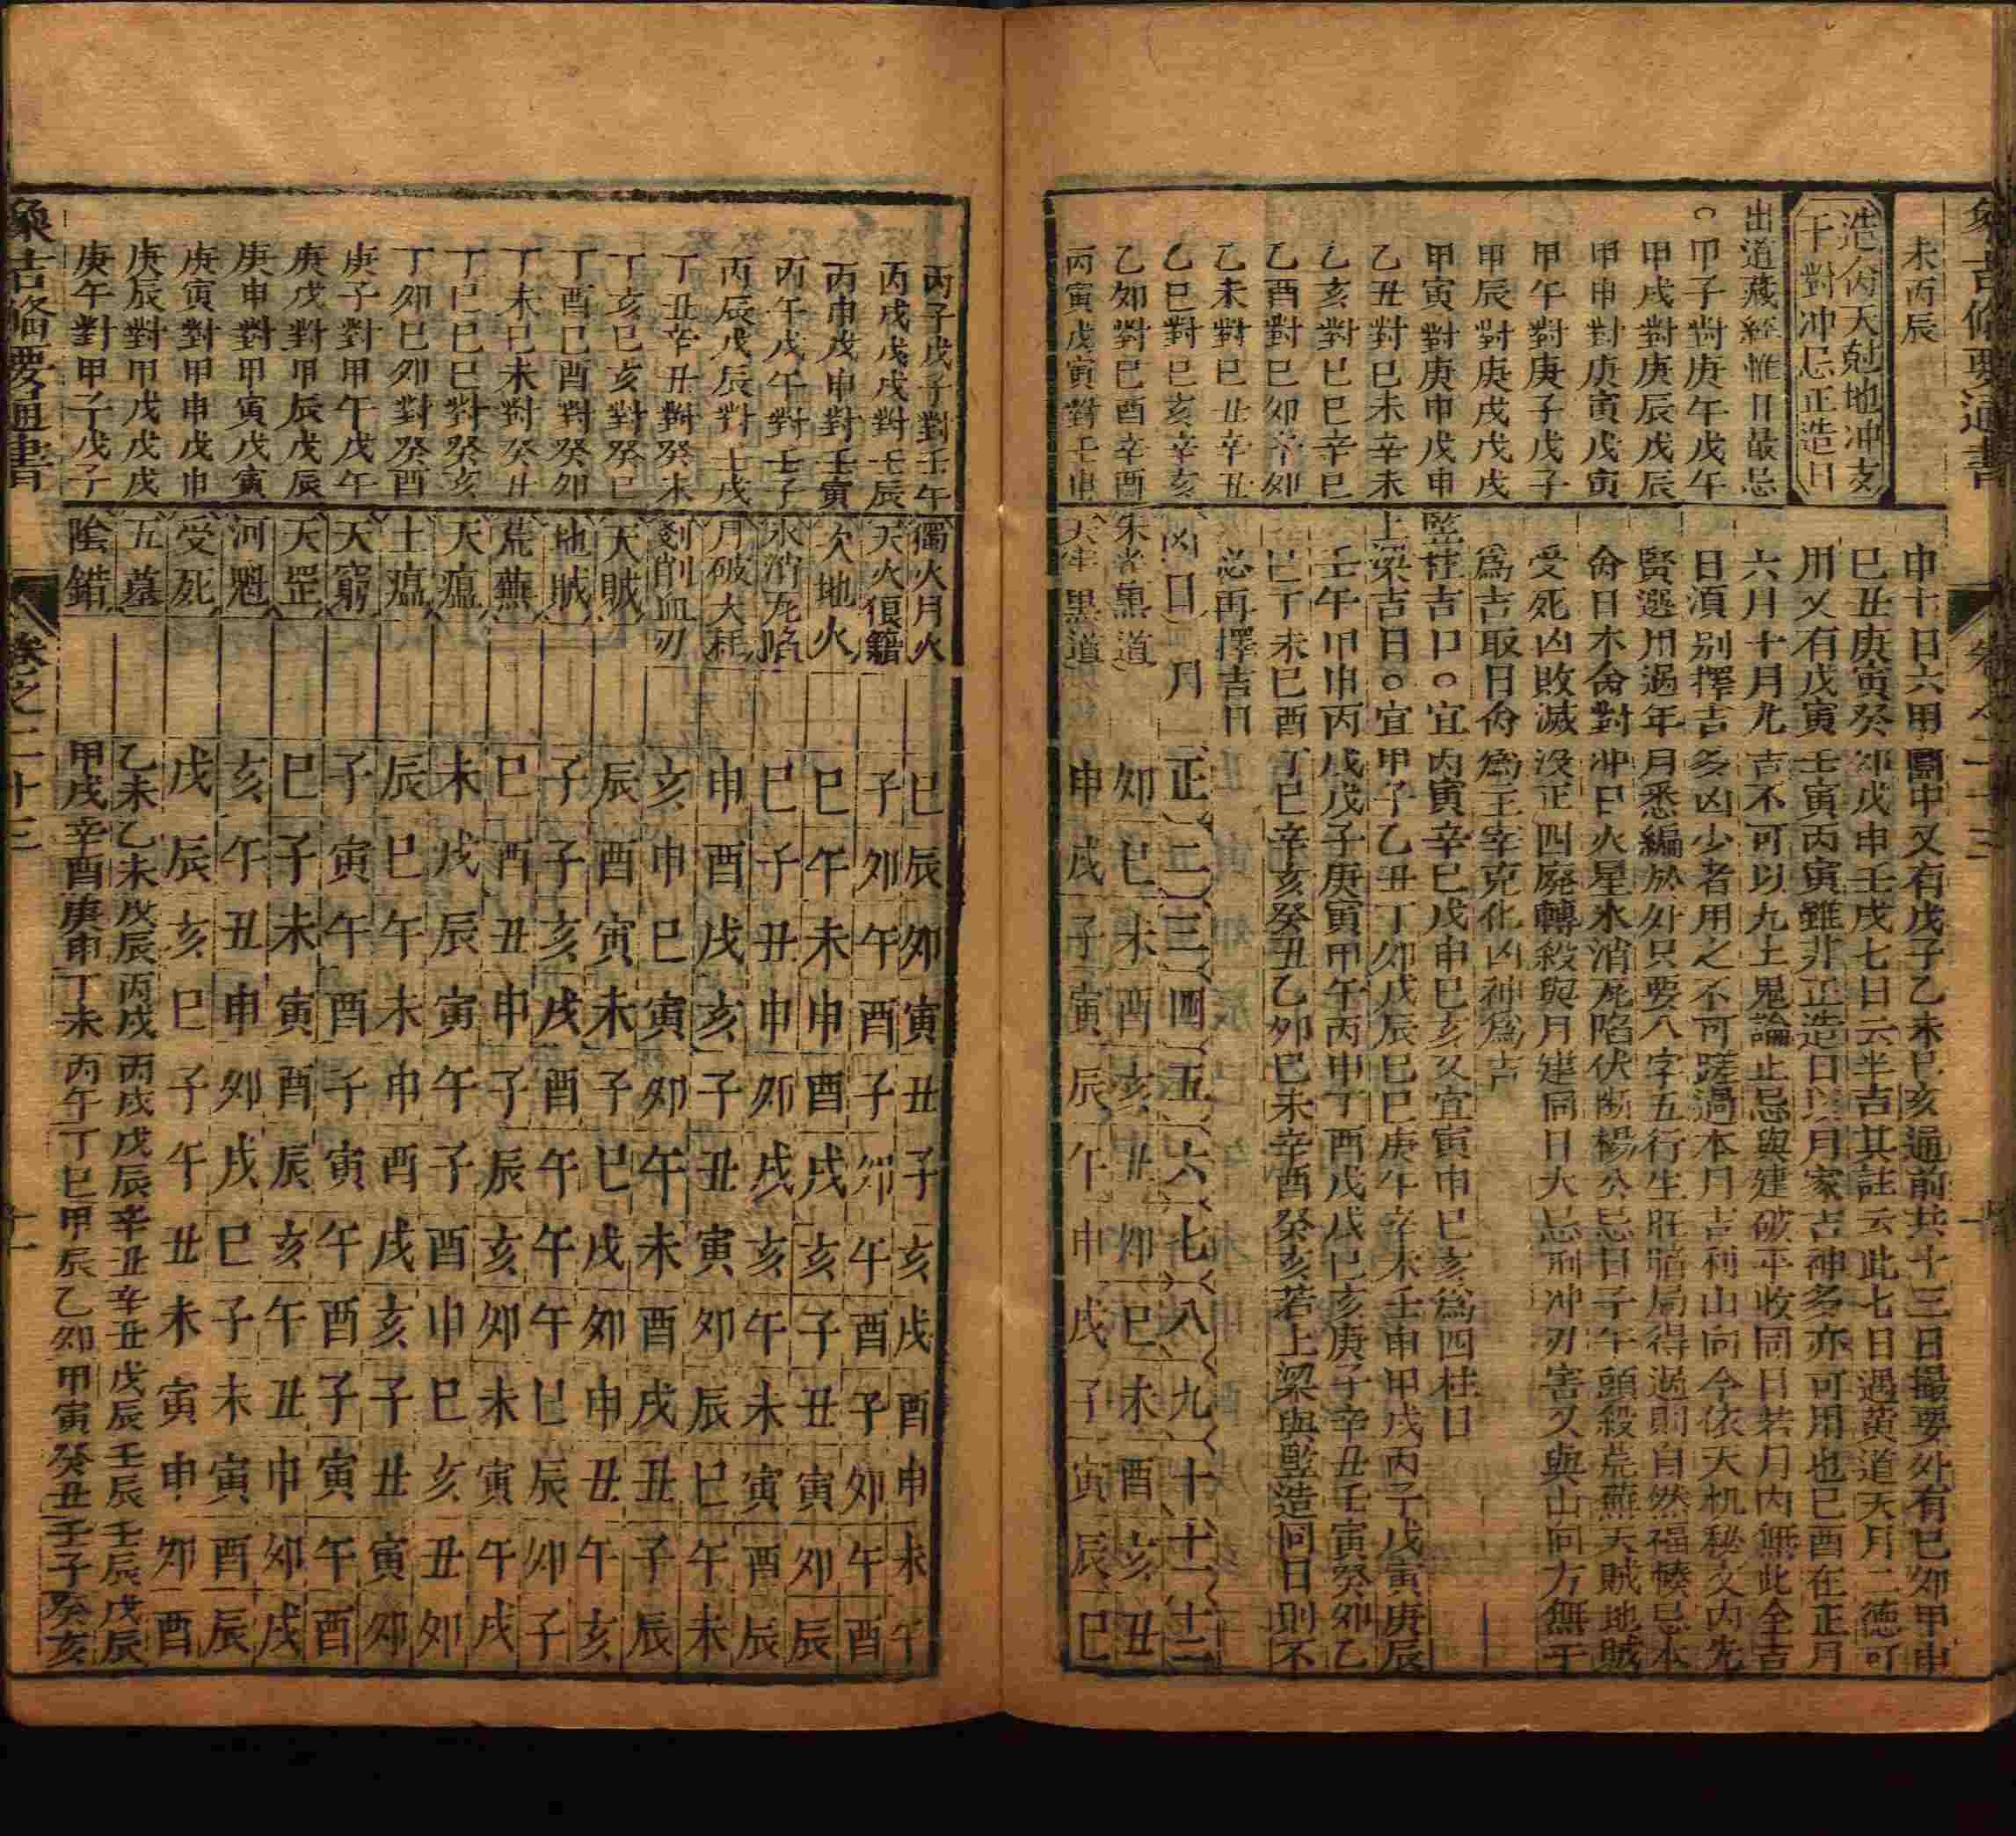 象吉備要通書
卷之二十三
未丙辰
造命天尅地冲支
干對冲忌正造日
出道藏經惟日最忌
○甲子對庚午戊午
甲戌對庚辰戊辰
甲申對庚寅戊寅
甲午對庚子戊子
甲辰對庚戌戊戌
甲寅對庚申戊申
乙丑對巳未辛未
乙亥對巳巳辛巳
乙酉對巳卯辛卯
乙未對巳丑辛丑
乙巳對巳亥辛亥
乙卯對巳酉辛酉
丙寅戊寅對壬申
申十日六甲圖中又有戊子乙未巳亥通前共十三日撮要外有巳卯甲申
巳丑庚寅癸卯戊申壬戌七日云半吉其註云此七日遇黄道天月二德可
用又有戊寅壬寅丙寅雖非正造日以月家吉神多亦可用也巳酉在正月
六月十月九吉不可以九土鬼論止忌與建破平收同日若月内無此全吉
日須别擇吉多凶少者用之不可蹉過本月吉利山向今依天机秘文内先
賢選用過年月悉編於外只要八字五行生旺騐局得過則自然福憐忌本
命日本命對冲日火星氷消瓦陷伏斷楊公忌日子午頭殺荒蕪天賊地賊
受死凶敗滅没正四廢轉殺與月建同日大忌刑冲刃害又與山向方無干
爲吉取日命爲主宰克化凶神爲吉
竪柱吉日○宜丙寅辛巳戊申巳亥又宜寅申巳亥爲四柱日
上梁吉日○宜甲子乙丑丁卯戊辰巳巳庚午辛未壬申甲戌丙子戊寅庚辰
壬午甲申丙戌戊子庚寅甲午丙申丁酉戊戌巳亥庚子辛丑壬寅癸卯乙
巳丁未巳酉丁巳辛亥癸丑乙卯巳未辛酉癸亥若上梁與竪造同日則不
必再擇吉日
凶日 月 正 二 三 四 五 六 七 八 九 十 十一 十二
朱雀黑道 卯 巳 未 酉 亥 丑 卯 巳 未 酉 亥 丑
天牢黑道 申 戌 子 寅 辰 午 申 戌 子 寅 辰 巳
丙子戊子對壬午
丙戌戊戌對壬辰
丙申戊申對壬寅
丙午戊午對壬子
丙辰戊辰對壬戌
丁丑辛丑對癸未
丁亥巳亥對癸巳
丁酉巳酉對癸卯
丁未巳未對癸丑
丁巳巳巳對癸亥
丁卯巳卯對癸酉
庚子對甲午戊午
庚戌對甲辰戊辰
庚申對甲寅戊寅
庚寅對甲申戊申
庚辰對甲戌戊戌
庚午對甲子戊子
獨火月火 巳 辰 卯 寅 丑 子 亥 戌 酉 申 未 午
天火狼籍 子 卯 午 酉 子 卯 午 酉 子 卯 午 酉
次地火 巳 午 未 申 酉 戌 亥 子 丑 寅 卯 辰
氷消瓦陷 巳 子 丑 申 卯 戌 亥 午 未 寅 酉 辰
月破大耗 申 酉 戌 亥 子 丑 寅 卯 辰 巳 午 未
刴削血刃 亥 申 巳 寅 卯 午 未 酉 戌 丑 子 辰
天賊 辰 酉 寅 未 子 巳 戌 卯 申 丑 午 亥
地賊 子 子 亥 戌 酉 午 午 午 巳 辰 卯 子
荒蕪 巳 酉 丑 申 子 辰 亥 卯 未 寅 午 戌
天瘟 未 戌 辰 寅 午 子 酉 申 巳 亥 丑 卯
土瘟 辰 巳 午 未 申 酉 戌 亥 子 丑 寅 卯
天窮 子 寅 午 酉 子 寅 午 酉 子 寅 午 酉
天罡 巳 子 未 寅 酉 辰 亥 午 丑 申 卯 戌
河魁 亥 午 丑 申 卯 戌 巳 子 未 寅 酉 辰
受死 戌 辰 亥 巳 子 午 丑 未 寅 申 卯 酉
五墓 乙未 乙未 戊辰 丙戌 丙戌 戊辰 辛丑 辛丑 戊辰 壬辰 壬辰 戊辰
陰錯 甲戌 辛酉 庚申 丁未 丙午 丁巳 甲辰 乙卯 甲寅 癸丑 壬子 癸亥
象吉備要通書
卷之二十三
十一